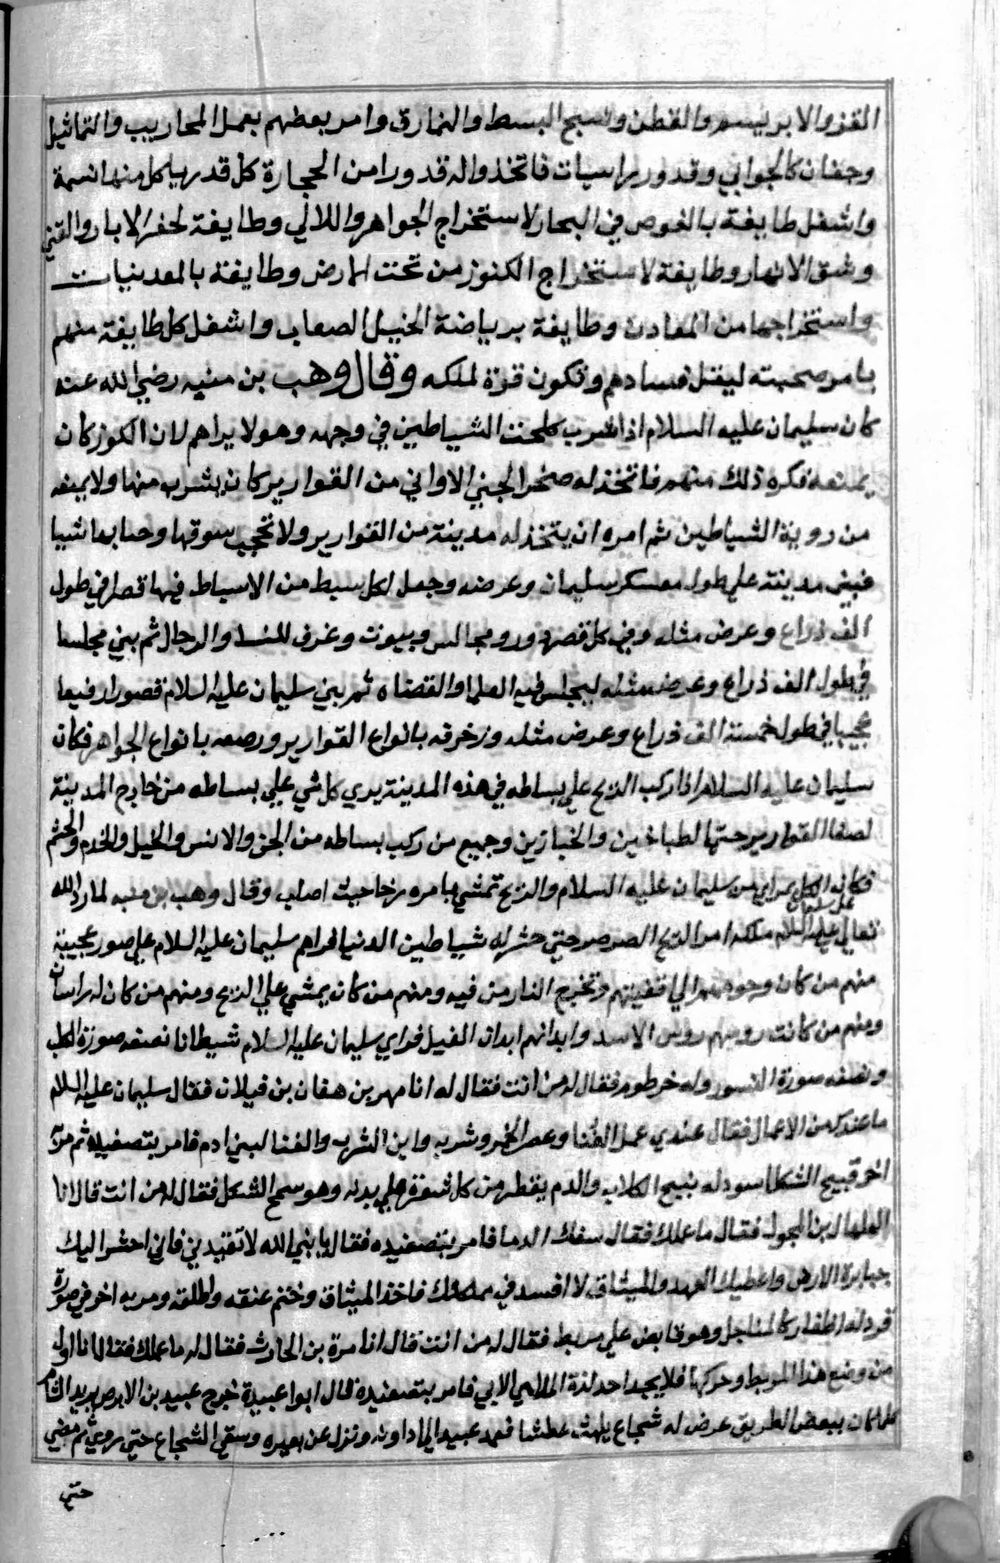 القز والابريسم والقطن ونسج البسط والنمارق وامر بعضهم بعمل المحاريب والتماثيل
وجفان كالجوابي وقدور راسيات فاتخذوا له قدورا من الحجارة كل قدر ياكل منها نسمة
واشغل طايفة بالغوص في البحار لاستخراج الجواهر واللالي وطايفة لحفر الابار والقني
وشق الانهار وطايفة لاستخراج الكنوز من تحت الارض وطايفة بالمعدنيات
واستخراجها من المعادن وطايفة برياضة الخيل الصعاب واشغل كل طايفة منهم
بامر صحبته ليقتل فسادهم وتكون قوة لملكه وقال وهب بن منبه رضي الله عنه
كان سليمان عليه السلام اذا شرب كلحت الشياطين في وجهه وهو لا يراهم لان الكوز كان
يمنعه فكره ذلك منهم فاتخذ له صخر الجني الاواني من القوارير كان يشرب منها ولا يمنعه
من روية الشياطين ثم امره ان يتخذ له مدينة من القوارير ولا تحجب سوقها وحيابها شيا
فبني مدينة علي طول معسكر سليمان وعرضه وجعل لكل سبط من الاسباط فيها قصرا في طول
الف ذراع وعرض مثله وفي كل قصر دور ومجالس وبيوت وغرف للنسا والرجال ثم بني مجلسا
في طول الف ذراع وعرض مثله ليجلس فيه العلما والقضاه ثم بني سليمان عليه السلام قصورا رفيعا
عجيبا في طول خمسة الف ذراع وعرض مثله وزخرفه بانواع القوارير ورصعه بانواع الجواهر فكان
سليمان عليه السلام اذا ركب الريح علي بساطه في هذه المدينة يري كل شي علي بساطه من خارج المدينة
لصفا القوارير حتي الطباخين والخبازين وجميع من ركب بساطه من الجن والانس والخيل والخدم والحشم
فكان الكل بمراي من سليمان عليه السلام والريح تمشي بامره رخا حيث اصاب وقال وهب بن منبه لما رد الله
علي سليمان
تعالي عليه السلام ملكه امر الريح الصرصر حتي حشر له شياطين الدنيا فراهم سليمان عليه السلام علي صور عجيبة
منهم من كان وجوههم الي اقفيتهم وتخرج النار من فيه ومنهم من كان يمشي علي الريح ومنهم من كان له راسان
ومنهم من كانت روسهم روس الاسد وابدانهم ابدان الفيل فراي سليمان عليه السلام شيطانا نصفه صورة الكلب
ونصفه صورة النسور وله خرطوم فقال له من انت فقال له انا مهر بن هفان بن فيلان فقال سليمان عليه السلام
ما عندك من الاعمال فقال عندي عمل الغنا وعصر الخمر وشربه وازين الشربه والغنا لبني ادم فامر بتصفيده ثم مر به
اخر قبيح الشكل اسود له نبيح الكلاب والدم يقطر من كل شعره علي بدنه وهو سمج الشكل فقال له من انت قال انا
الهلهال بن المجول فقال ما عملك فقال سفك الدما فامر بتصفيده فقال يا نبي الله لا تقيدني فاني احشر اليك
جبابرة الارض واعطيك العهد والميثاق لا افسد في مملكتك فاخذ الميثاق وختم عنقه واطلقه ومر به اخر في صورة
قرد له اظفار كالمناجل وهو قابض علي بربط فقال له من انت قال انا مرة بن الحارث فقال له ما عملك فقال انا اول
من وضع هذا البربط وحركها فلا يجد احد لذة الملاهي الا بي فامر بتصفيده قال ابوا عبيدة خرج عبيد بن الابرص يريد الشام
كلما كان ببعض الطريق عرض له شجاع يلهث عطشا فعمد عبيد الي اداوته ونزل عن بعيره وسقي الشجاع حتي روي ثم مضي
حتي